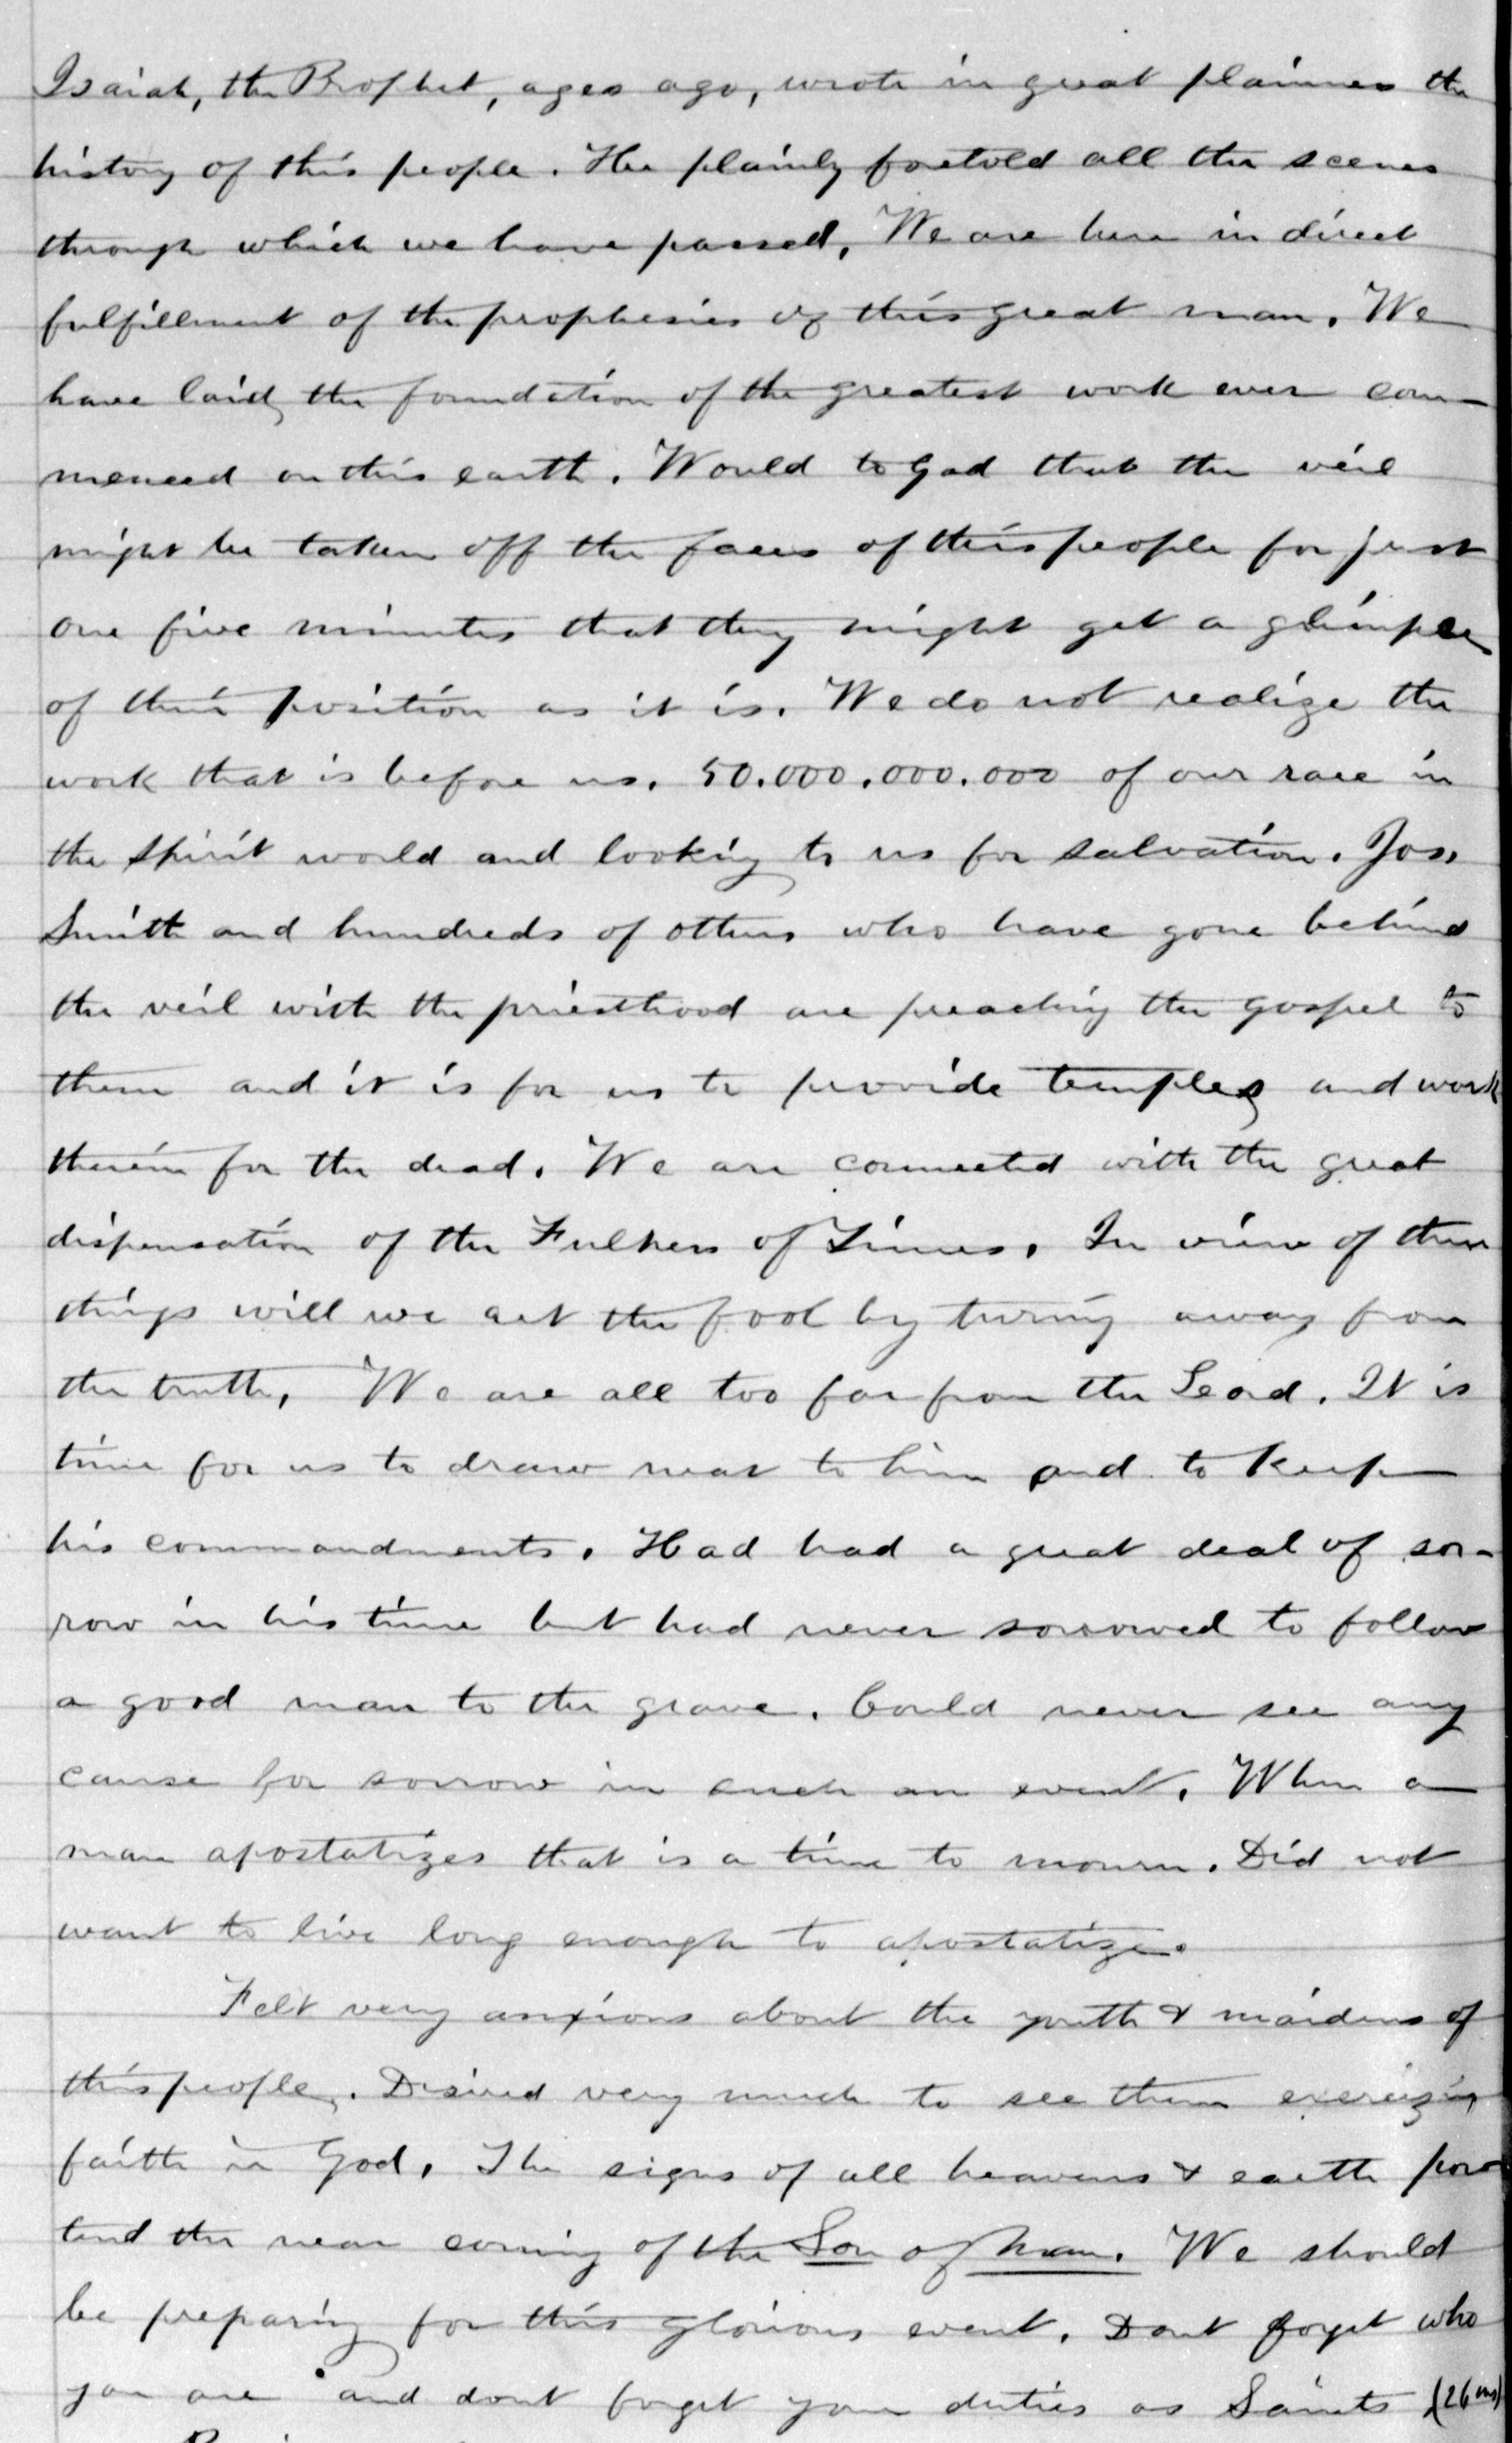 Isaiah, the Prophet, ages ago, wrote in great plainnes the
history of this people. He plainly foretold all the scenes
through which we have passed, We are here in direct
fulfillment of the prophesies of this great man. We
have laid the foundation of the greatest work ever com-
menced on this earth. Would to God that the veil
might be taken off the faces of this people for just
one five minutes that they might get a glimpse
of their position as it is. We do not realize the
work that is before us. 50.000.000.000 of our race in
the spirit world and looking to us for salvation. Jos.
Smith and hundreds of others who have gone behind
the veil with the priesthood are preaching the gospel to
them and it is for us to provide temples and work
therein for the dead. We are connected with the great
dispensation of the Fulness of Times. In view of these
things will we act the fool by turning away from
the truth, We are all too far from the Lord. It is
time for us to draw near to him and to keep
his commandments. Had had a great deal of sor-
row in his time but had never sorrowed to follow
a good man to the grave. Could never see any
cause for sorrow in such an event. When a
man apostatizes that is a time to mourn. Did not
want to live long enough to apostatize.
Felt very anxious about the youth & maidens of
this people. Desired very much to see them exercising
faith in God. The signs of all heavens & earth por-
tend the near coming of the Son of Man. We should
be preparing for this glorious event. Dont forget who
you are and dont forget your duties as Saints (26 ms)